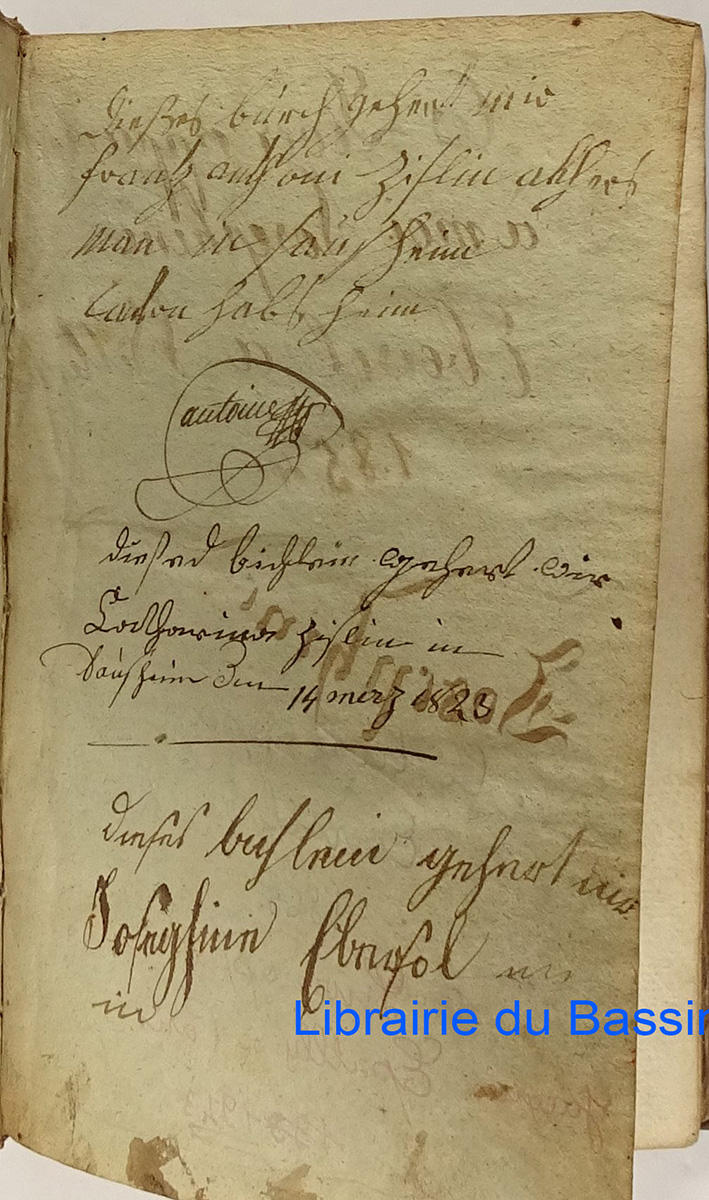 Dießes buch gehert mir
frantz anthoni Zislin akhers
man in sausheim
canton habsheim
antoine
dießes bichlein gehert mir
Catharina Zislin in
sausheim den 14 merz 1823
dieses buhlein gehert mir
Josephine Ebersol
in
Librairie du Bassin